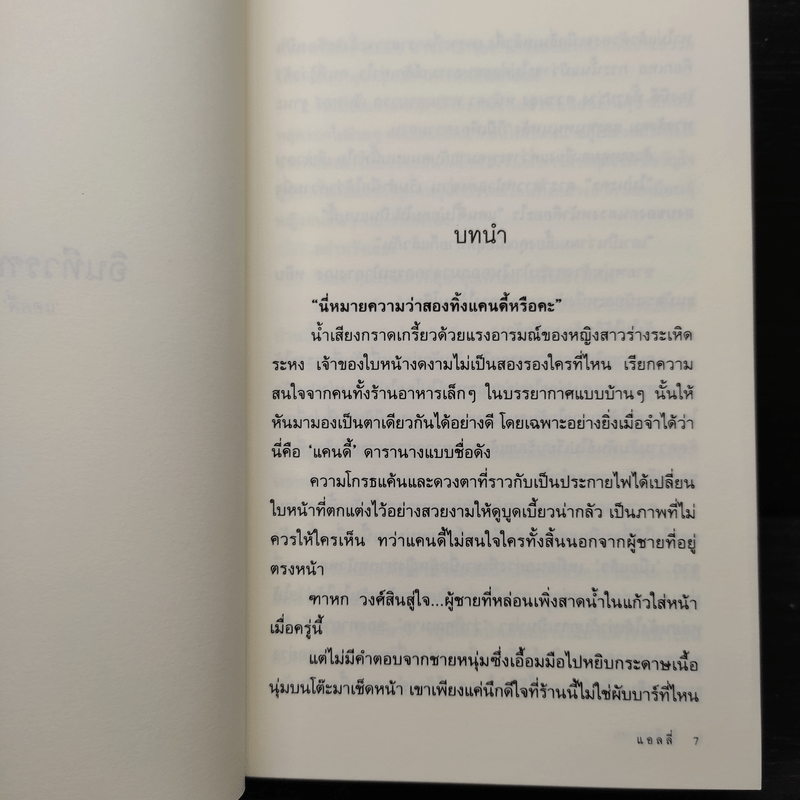 บทนำ
“นี่หมายความว่าสองทิ้งแคนดี้หรือคะ”
น้ำเสียงกราดเกรี้ยวด้วยแรงอารมณ์ของหญิงสาวร่างระเหิด
ระหง เจ้าของใบหน้างดงามไม่เป็นสองรองใครที่ไหน เรียกความ
สนใจจากคนทั้งร้านอาหารเล็กๆ ในบรรยากาศแบบบ้านๆ นั้นให้
หันมามองเป็นตาเดียวกันได้อย่างดี โดยเฉพาะอย่างยิ่งเมื่อจำได้ว่า
นี่คือ ‘แคนดี้’ ดารานางแบบชื่อดัง
ความโกรธแค้นและดวงตาที่ราวกับเป็นประกายไฟได้เปลี่ยน
ใบหน้าที่ตกแต่งไว้อย่างสวยงามให้ดูบูดเบี้ยวน่ากลัว เป็นภาพที่ไม่
ควรให้ใครเห็น ทว่าแคนดี้ไม่สนใจใครทั้งสิ้นนอกจากผู้ชายที่อยู่
ตรงหน้า
ฑาหก วงศ์สินสู่ใจ...ผู้ชายที่หล่อนเพิ่งสาดน้ำในแก้วใส่หน้า
เมื่อครู่นี้
แต่ไม่มีคำตอบจากชายหนุ่มซึ่งเอื้อมมือไปหยิบกระดาษเนื้อ
นุ่มบนโต๊ะมาเช็ดหน้า เขาเพียงแค่นึกดีใจที่ร้านนี้ไม่ใช่ผับบาร์ที่ไหน
แอลลี่ 7